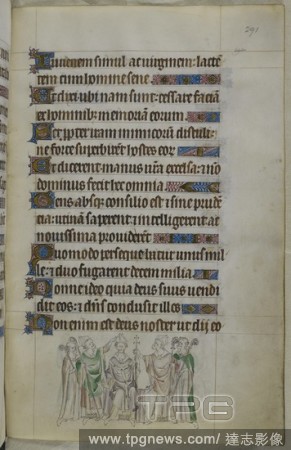 291
Iuvenem simul ac virginem: lacten
tem cum homine sene.
Et dixi ubi nam sunt: cessare faciā
ex hominib; memoriā eorum.
Set propter iram inimicorū distuli:
ne forte superbirent hostes eor;
Et dicerent manus nrā excelsa: ⁊ nō
dominus fecit hec omnia.
Gens absq; consilio est ⁊ sine prudē
cia: utinā saperent ⁊ intelligerent ac
novissima providerēt.
Quomodo persequebatur unus mil
le: ⁊ duo fugarent decem milia.
Nonne ideo quia deus suus vendi
dit eos: ⁊ dn̄s conclusit illos
Non enim est deus noster ut dii eo
TPG
www.tpgnews.com/達志影像